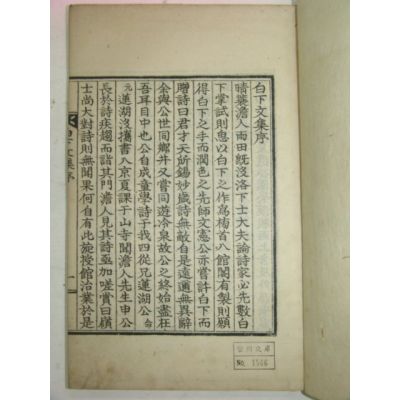 白下文集序
晴蓑澹人雨田旣沒洛下士大夫論詩家必先數白
下掌試則悉以白下之作爲首入館閣有製則願
得白下之手而潤色之先師文憲公亦嘗許白下而
贈詩曰君才天所錫妙歲詩無敵自是遠邇無異辭
余與公世同鄕井又嘗同遊冷泉故公之終始盡在
吾耳目中也公自成童學詩于我四從兄蓮湖公命
元蓮湖沒攜書入京夏課于山寺聞澹人先生申公
長於詩疾趨而謁其門澹人見其詩亟加嗟賞曰嶺
士尙大對詩則無聞果何自有此旋授館治業於是
文集序
一
No. 1566